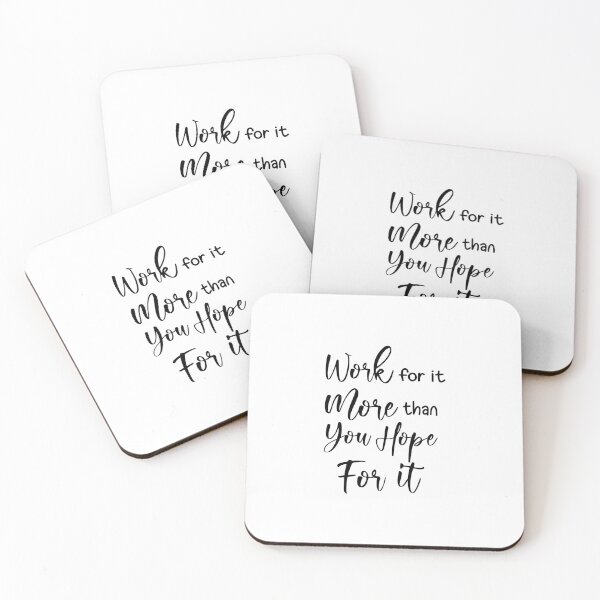 Work for it
More than
pe
Work for it
More than
You Hope
For it
Work for it
More than
You Hope
For it
Work for it
More than
You Hope
For it